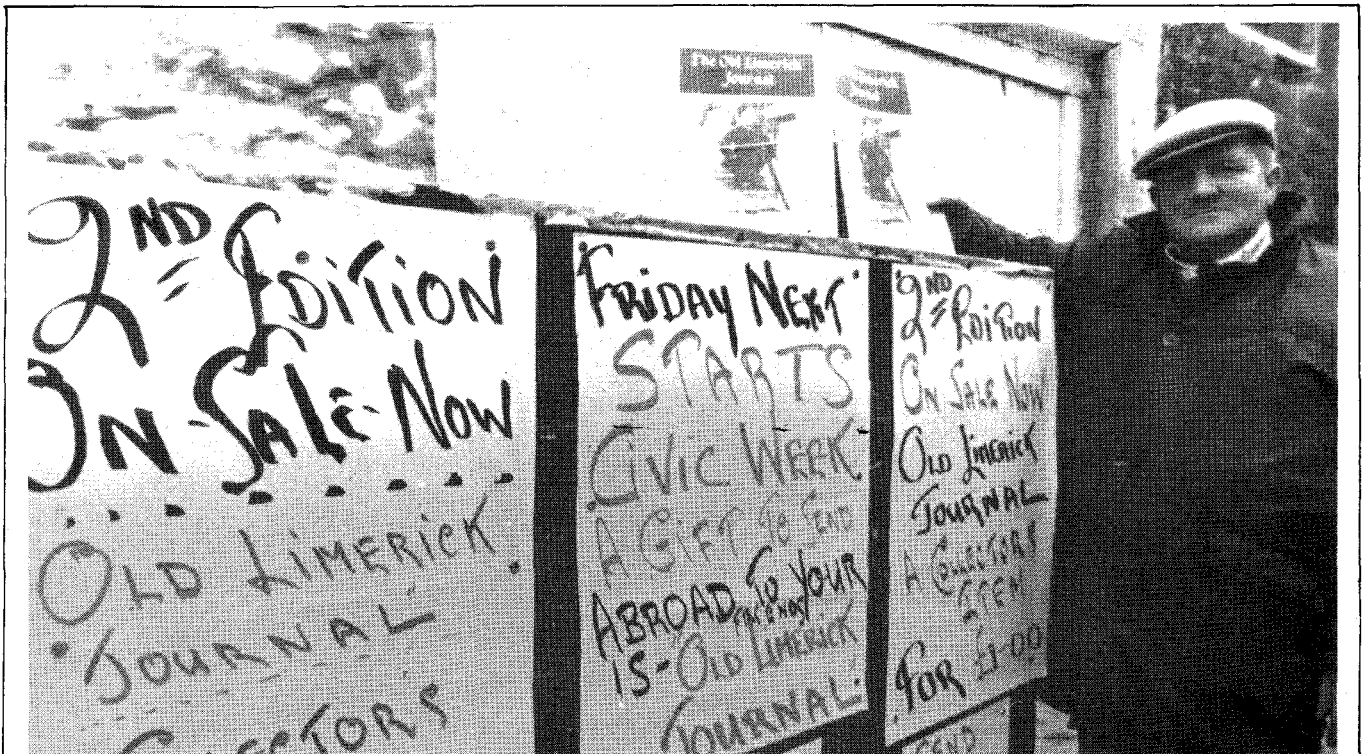 The Old Limerick
Journal
2ND EDITION
ON-SALE-NOW
OLD LIMERICK
JOURNAL
COLLECTORS
FRIDAY NEXT
STARTS
CIVIC WEEK
A GIFT TO SEND
ABROAD TO YOUR
FRIENDS
IS-OLD LIMERICK
JOURNAL
2ND EDITION
ON SALE NOW
OLD LIMERICK
JOURNAL
A COLLECTORS
ITEM
FOR £1-00
SEND